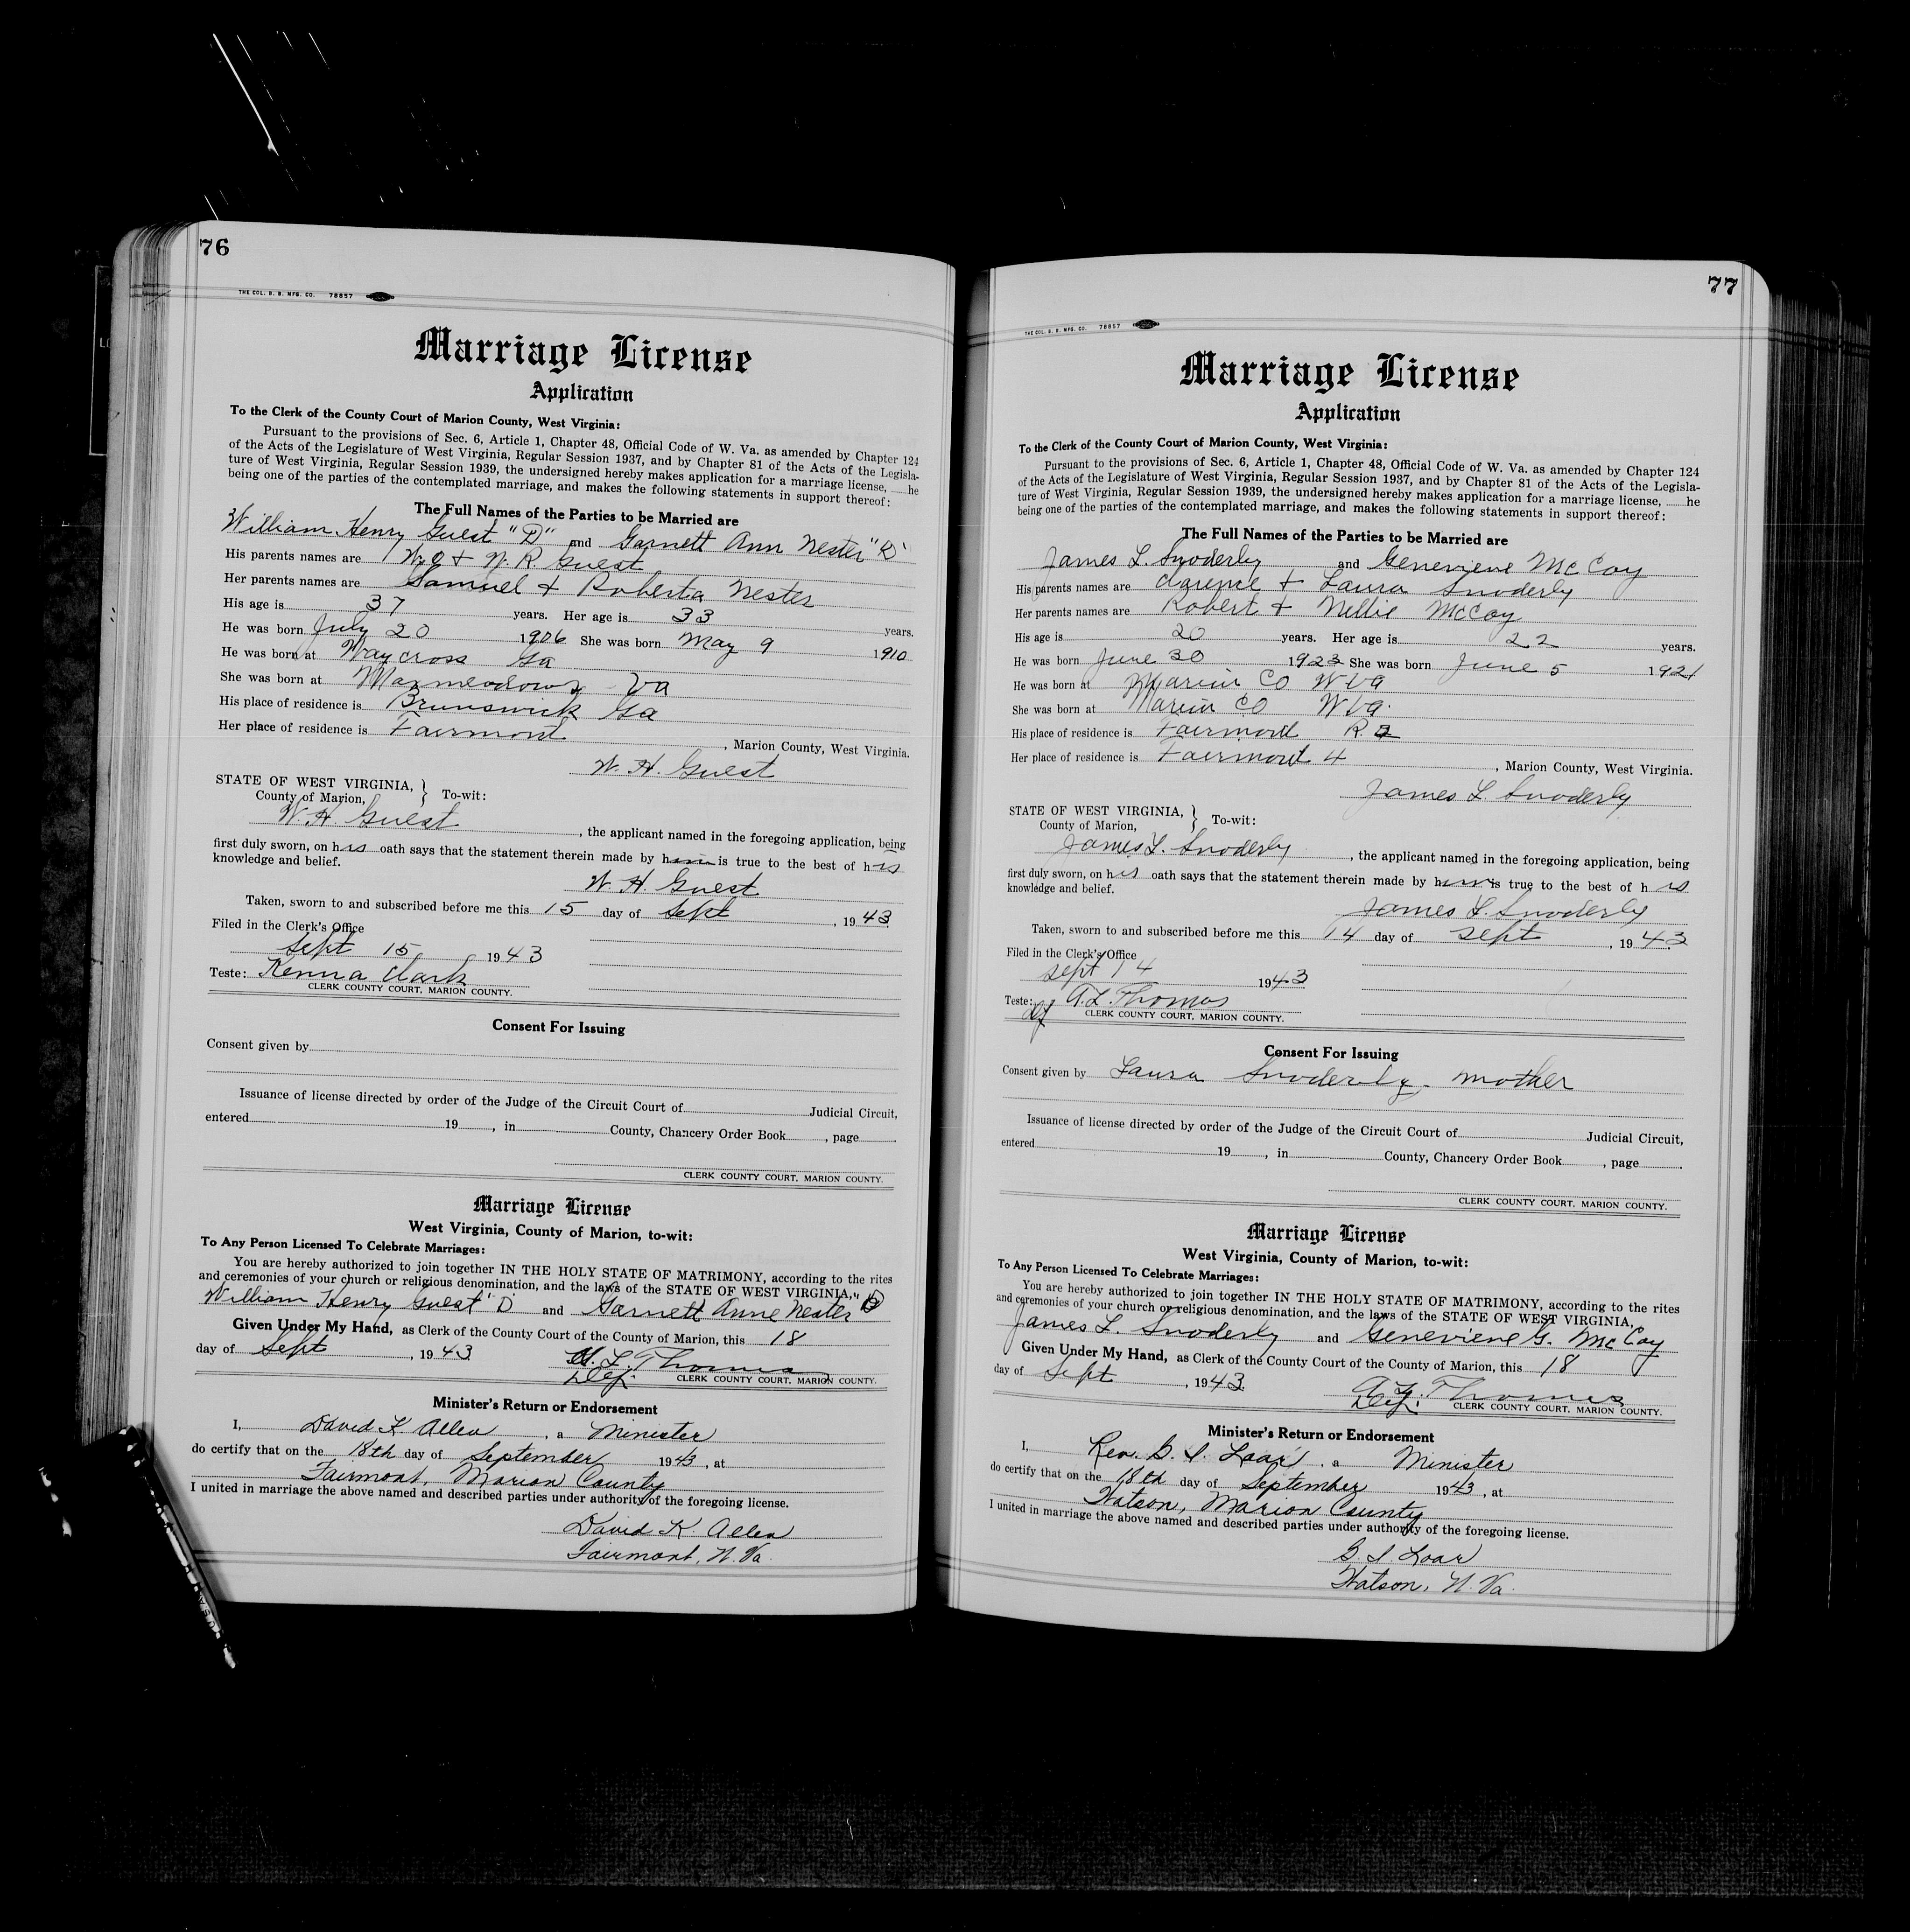 76
THE COL. B. B. MFG. CO. 78857
Marriage License
Application
To the Clerk of the County Court of Marion County, West Virginia:
Pursuant to the provisions of Sec. 6, Article 1, Chapter 48, Official Code of W. Va. as amended by Chapter 124
of the Acts of the Legislature of West Virginia, Regular Session 1937, and by Chapter 81 of the Acts of the Legisla-
ture of West Virginia, Regular Session 1939, the undersigned hereby makes application for a marriage license, ......he
being one of the parties of the contemplated marriage, and makes the following statements in support thereof:
The Full Names of the Parties to be Married are
William Henry Guest "D" and Garnett Ann Nester "D"
His parents names are W. O & N. R. Guest
Her parents names are Samuel & Roberta Nester
His age is 37 years. Her age is 33 years.
He was born July 20 1906 She was born May 9 1910
He was born at Waycross Ga
She was born at Maxmeadows Va
His place of residence is Brunswick Ga
Her place of residence is Fairmont, Marion County, West Virginia.
W. H. Guest
STATE OF WEST VIRGINIA,
County of Marion, } To-wit:
W. H. Guest, the applicant named in the foregoing application, being
first duly sworn, on his oath says that the statement therein made by him is true to the best of his
knowledge and belief.
W. H. Guest
Taken, sworn to and subscribed before me this 15 day of Sept, 1943.
Filed in the Clerk's Office
Sept 15 1943
Teste: Kenna Clark
CLERK COUNTY COURT, MARION COUNTY.
Consent For Issuing
Consent given by
Issuance of license directed by order of the Judge of the Circuit Court of Judicial Circuit,
entered 19, in County, Chancery Order Book, page
CLERK COUNTY COURT, MARION COUNTY.
Marriage License
West Virginia, County of Marion, to-wit:
To Any Person Licensed To Celebrate Marriages:
You are hereby authorized to join together IN THE HOLY STATE OF MATRIMONY, according to the rites
and ceremonies of your church or religious denomination, and the laws of the STATE OF WEST VIRGINIA,
William Henry Guest "D" and Garnett Anne Nester "D"
Given Under My Hand, as Clerk of the County Court of the County of Marion, this 18
day of Sept, 1943 A. L. Thomas
Dep. CLERK COUNTY COURT, MARION COUNTY.
Minister's Return or Endorsement
I, David K Allen, a Minister
do certify that on the 18th day of September 1943, at
Fairmont, Marion County
I united in marriage the above named and described parties under authority of the foregoing license.
David K. Allen
Fairmont, W. Va.
77
THE COL. B. B. MFG. CO. 78857
Marriage License
Application
To the Clerk of the County Court of Marion County, West Virginia:
Pursuant to the provisions of Sec. 6, Article 1, Chapter 48, Official Code of W. Va. as amended by Chapter 124
of the Acts of the Legislature of West Virginia, Regular Session 1937, and by Chapter 81 of the Acts of the Legisla-
ture of West Virginia, Regular Session 1939, the undersigned hereby makes application for a marriage license, ......he
being one of the parties of the contemplated marriage, and makes the following statements in support thereof:
The Full Names of the Parties to be Married are
James L. Snoderly and Genevieve McCoy
His parents names are Clarence & Laura Snoderly
Her parents names are Robert & Nellie McCoy
His age is 20 years. Her age is 22 years.
He was born June 30 1923 She was born June 5 1921
He was born at Marion Co W Va
She was born at Marion Co W Va.
His place of residence is Fairmont R. 2
Her place of residence is Fairmont 4, Marion County, West Virginia.
James L. Snoderly
STATE OF WEST VIRGINIA,
County of Marion, } To-wit:
James L. Snoderly, the applicant named in the foregoing application, being
first duly sworn, on his oath says that the statement therein made by him is true to the best of his
knowledge and belief.
James L. Snoderly
Taken, sworn to and subscribed before me this 14 day of Sept, 1943
Filed in the Clerk's Office
Sept 14 1943
Teste: A. L. Thomas
CLERK COUNTY COURT, MARION COUNTY.
Consent For Issuing
Consent given by Laura Snoderly. mother
Issuance of license directed by order of the Judge of the Circuit Court of Judicial Circuit,
entered 19, in County, Chancery Order Book, page
CLERK COUNTY COURT, MARION COUNTY.
Marriage License
West Virginia, County of Marion, to-wit:
To Any Person Licensed To Celebrate Marriages:
You are hereby authorized to join together IN THE HOLY STATE OF MATRIMONY, according to the rites
and ceremonies of your church or religious denomination, and the laws of the STATE OF WEST VIRGINIA,
James L. Snoderly and Genevieve G. McCoy
Given Under My Hand, as Clerk of the County Court of the County of Marion, this 18
day of Sept, 1943. A. L. Thomas
Dep. CLERK COUNTY COURT, MARION COUNTY.
Minister's Return or Endorsement
I, Rev. G. I. Loar, a Minister
do certify that on the 18th day of September 1943, at
Watson, Marion County
I united in marriage the above named and described parties under authority of the foregoing license.
G. I Loar
Watson, W. Va.